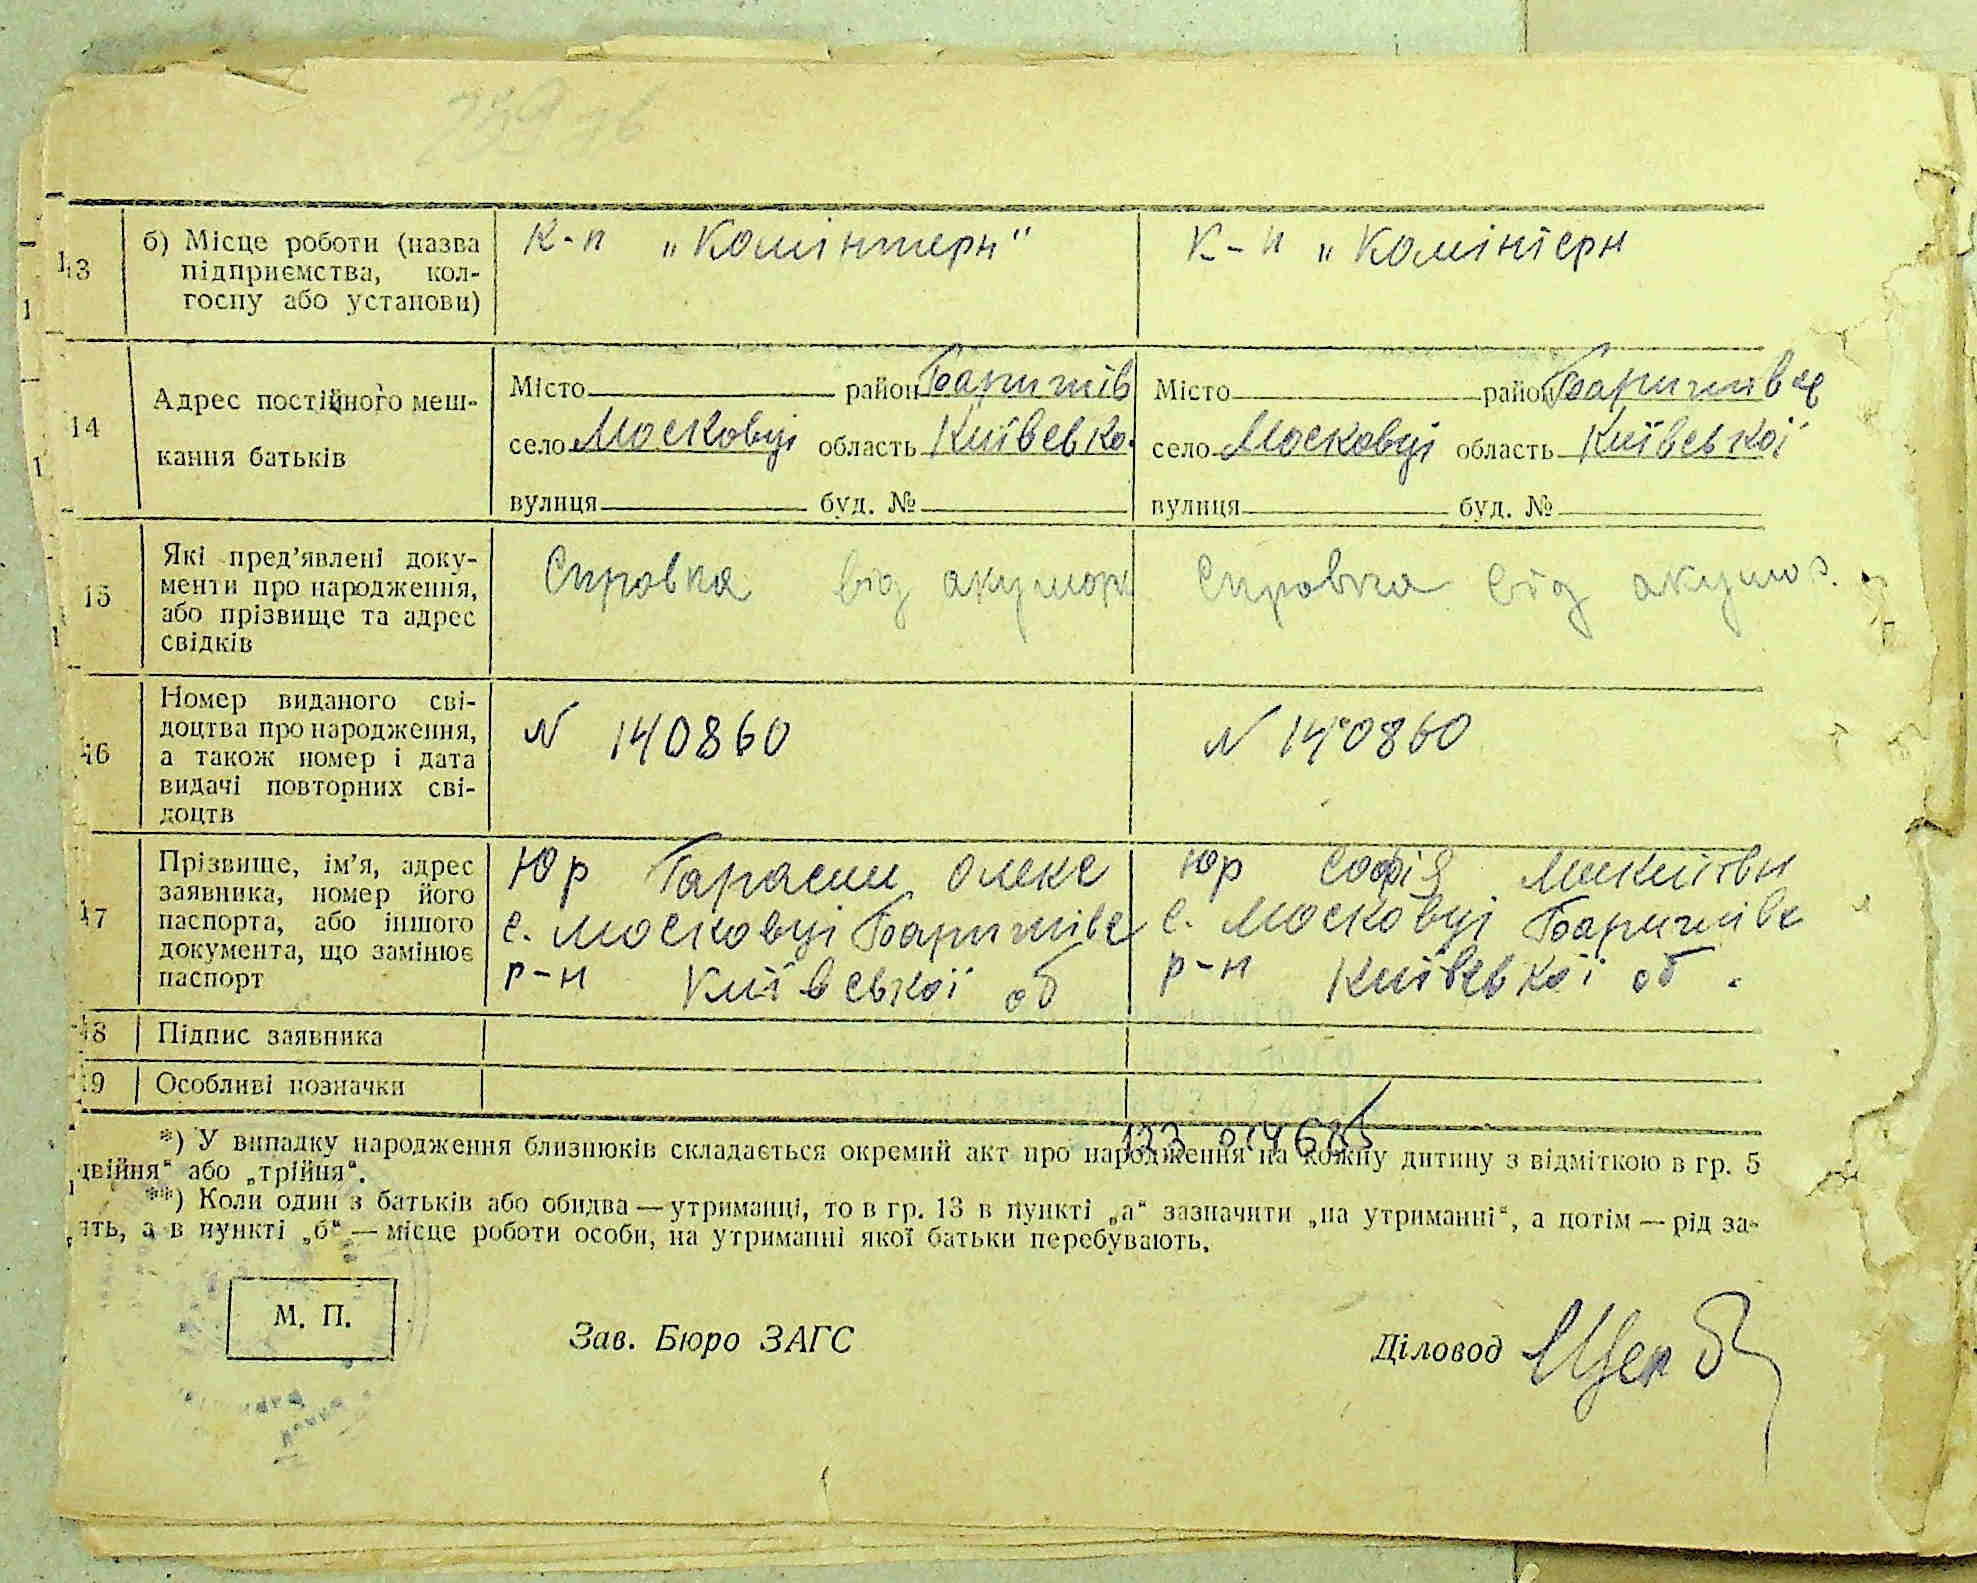 13
б) Місце роботи (назва
підприємства, кол-
госпу або установи)
К-п „Комінтерн"
К-п „Комінтерн
14
Адрес постійного меш-
кання батьків
Місто район Баришів
село Московці область Київсько.
вулиця буд. №
Місто район Баришівк
село Московці область Київської
вулиця буд. №
15
Які пред'явлені доку-
менти про народження,
або прізвище та адрес
свідків
Справка від акушорк
Справка від акушо
16
Номер виданого сві-
доцтва про народження,
а також номер і дата
видачі повторних сві-
доцтв
N 140860
N 140860
17
Прізвище, ім'я, адрес
заявника, номер його
паспорта, або іншого
документа, що замінює
паспорт
Юр Тарасии Олекс
с. Московці Баришівс
р-н Київської об
Юр Софія Микитовн
с. Московці Баришівк
р-н Київської об.
18
Підпис заявника
19
Особливі позначки
*) У випадку народження близнюків складається окремий акт про народження на кожну дитину з відміткою в гр. 5
„двійня" або „трійня".
**) Коли один з батьків або обидва — утриманці, то в гр. 13 в пункті „а" зазначити „на утриманні", а потім — рід за-
ять, а в пункті „б" — місце роботи особи, на утриманні якої батьки перебувають.
М. П.
Зав. Бюро ЗАГС
Діловод